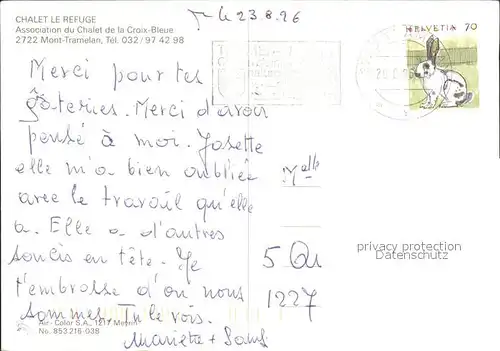 CHALET LE REFUGE
Association du Chalet de la Croix-Bleue
2722 Mont-Tramelan, Tél. 032/97 42 98
le 23.8.96
HELVETIA 70
Merci pour tes
gâteries. Merci d'avoir
pensé à moi. Josette
elle m'a bien oubliée
avec le travail qu'elle
a. Elle a d'autres
soucis en tête. Je
t'embrasse d'où nous
sommes. Tu le vois.
Mariette +
Mlle
5
1227
privacy protection
AnsichtskartenVersand.com
Air-Color S.A., 1217 Meyrin
No. 853216-038